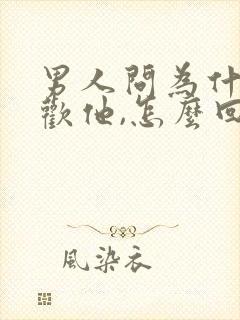 男人問為什
歡他,怎麼回
風染衣